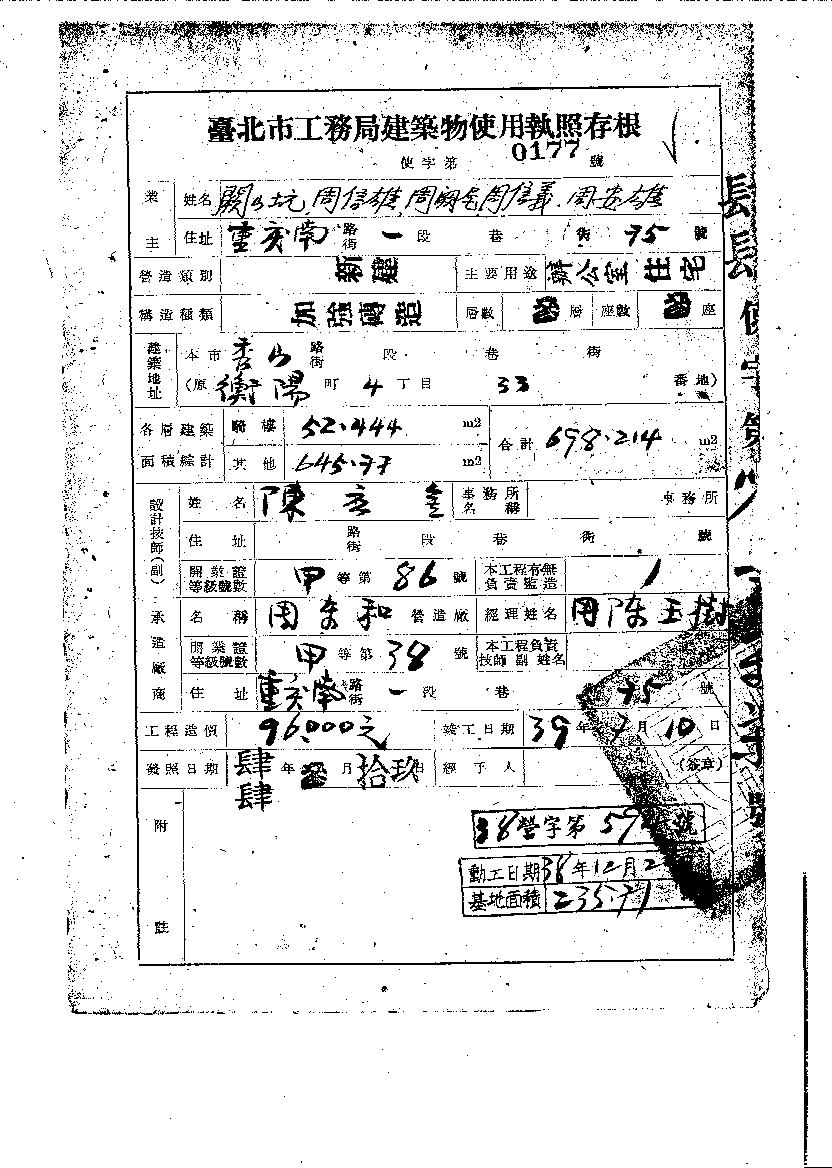 臺北市工務局建築物使用執照存根
使字第 0177 號
業主 姓名 周信雄 周信義 周
住址 重慶南 路街 一 段 巷 街 75 號
營造類別 新建 主要用途 辦公室 住宅
構造種類 加強磚造 層數 層 座數 座
建築地址 本市 路街 段 巷 街
(原 衡陽 町 4 丁目 33 番地)
各層建築面積綜計 騎樓 52.444 m2 合計 698.214 m2
其他 645.77 m2
設計技師(副) 姓名 陳 金 事務所名稱 事務所
住址 路街 段 巷 街 號
開業證等級號數 甲 等第 86 號 本工程有無負責監造
承造廠商 名稱 周 和 營造廠 經理姓名 周陈玉樹
開業證等級號數 甲 等第 38 號 本工程負責技師副姓名
住址 重慶南 路街 一 段 巷 75 號
工程造價 96,000元 竣工日期 39 年 7 月 10 日
發照日期 肆肆 年 月 拾玖 日 經手人 (簽章)
附註
38營字第 59 號
動工日期 38年12月2
基地面積 235.71